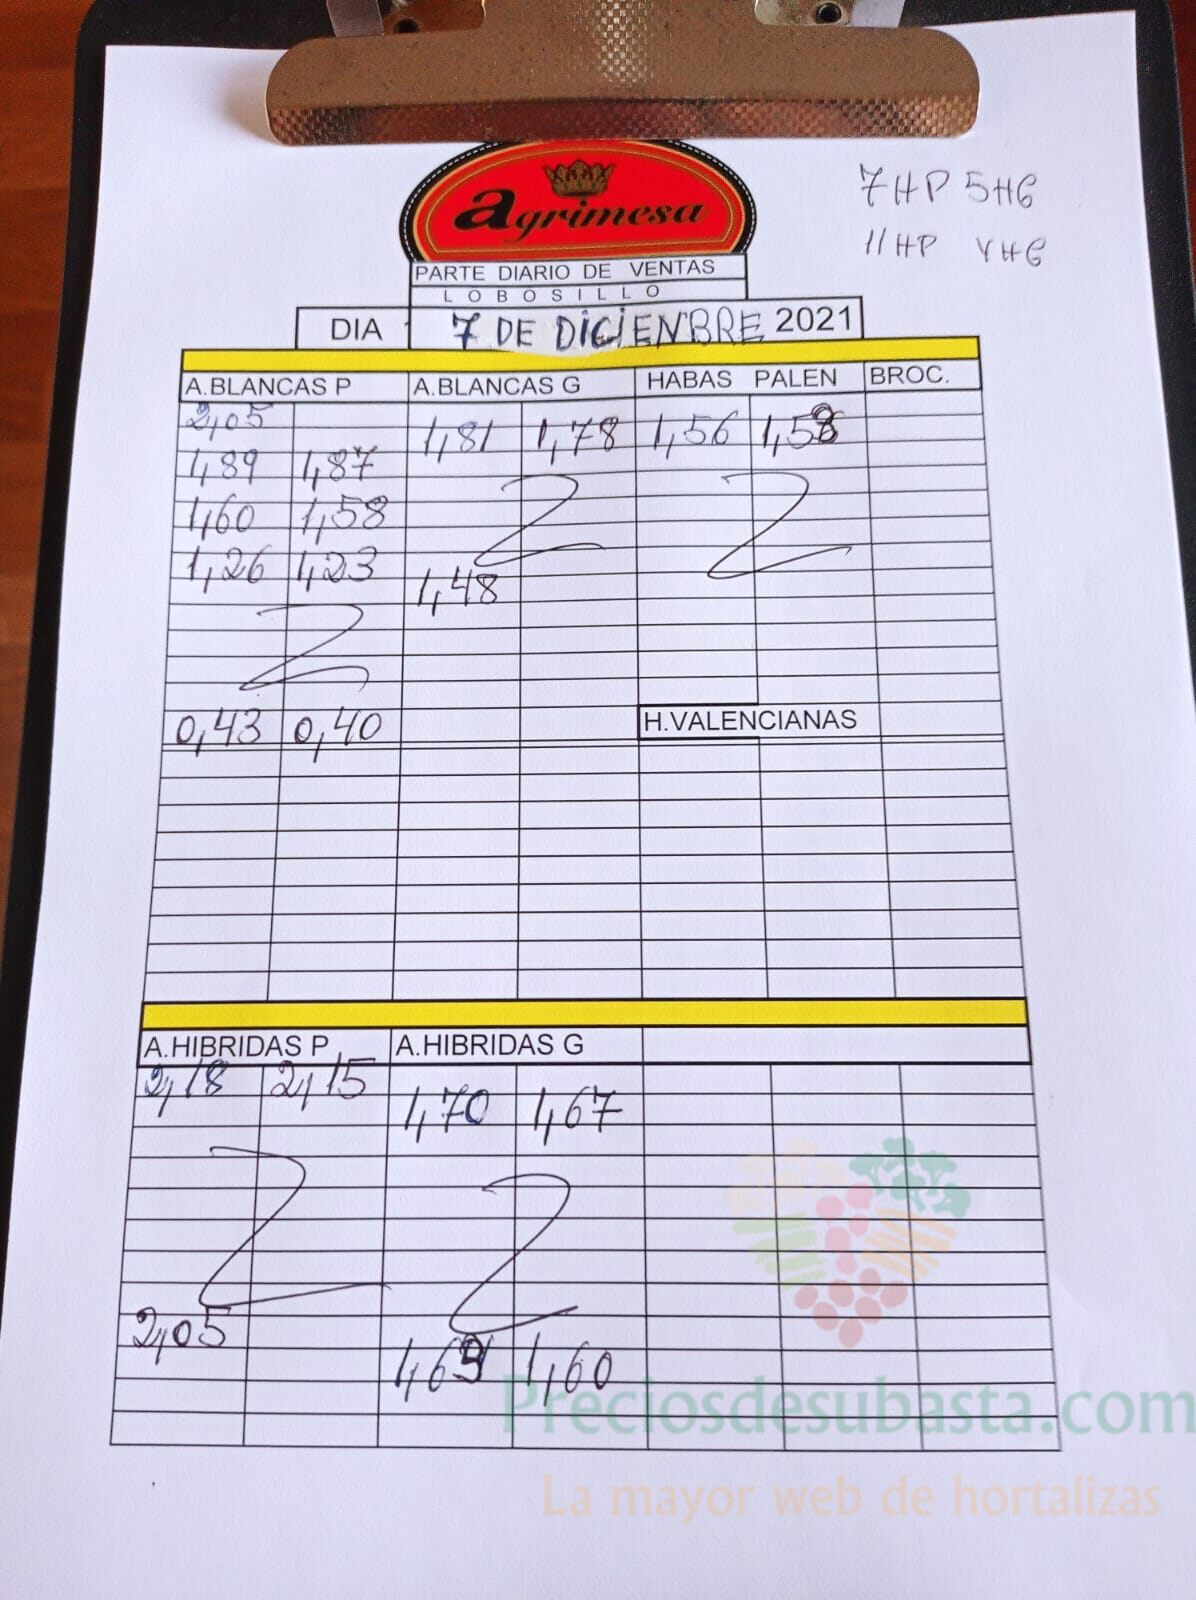 agrimesa
7 HP 5 HG
11 HP 4 HG
PARTE DIARIO DE VENTAS
LOBOSILLO
DIA 7 DE DICIENBRE 2021
A.BLANCAS P A.BLANCAS G HABAS PALEN BROC.
2,05
1,81 1,78 1,56 1,53
1,89 1,87
1,60 1,58
1,26 1,23
1,48
0,43 0,40
H.VALENCIANAS
A.HIBRIDAS P A.HIBRIDAS G
2,18 2,15
1,70 1,67
2,05
1,63 1,60
Preciosdesubasta.com
La mayor web de hortalizas